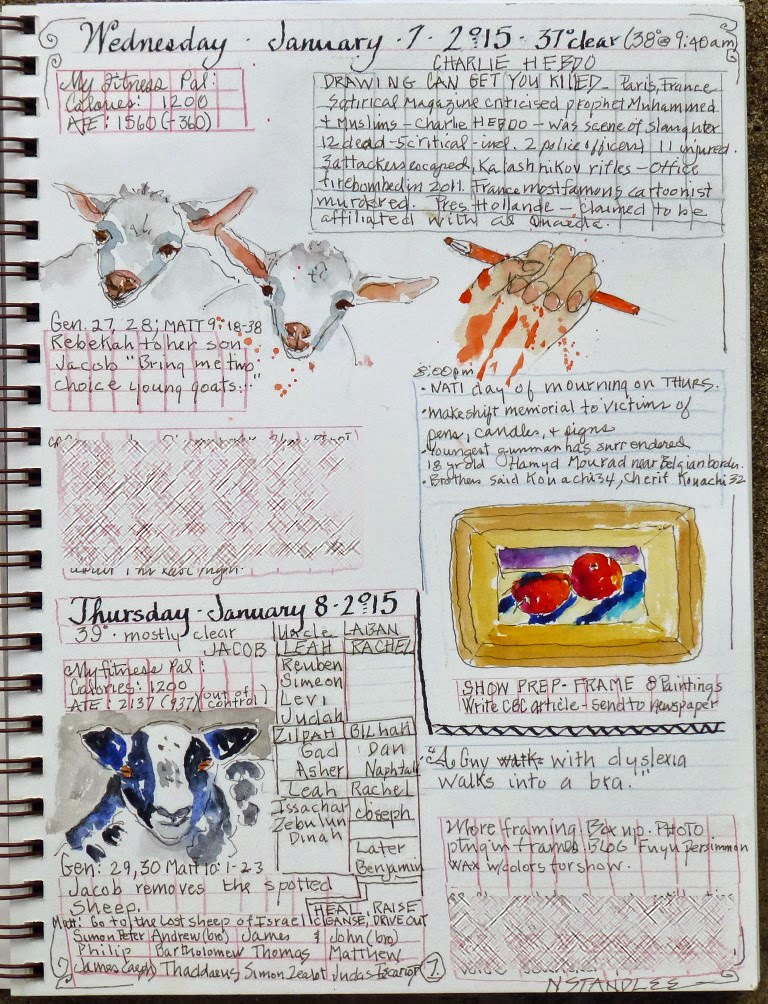 Wednesday · January · 7 · 2015 · 37° clear (38° @ 9:40am)
My Fitness Pal:
Calories: 1200
ATE: 1560 (-360)
CHARLIE HEBDO
DRAWING CAN GET YOU KILLED - Paris, France
Satirical Magazine criticised prophet Muhammed
+ Muslims - Charlie HEBDO - was scene of slaughter
12 dead - 5 critical - incl. 2 police officers 11 injured.
3 attackers escaped, Kalashnikov rifles - Office
firebombed in 2011. France most famous cartoonist
murdered. Pres. Hollande - claimed to be
affiliated with al Quaeda.
Gen. 27, 28; MATT 9: 18-38
Rebekah to her son
Jacob "Bring me two
choice young goats..."
8:00pm
• NATL day of mourning on THURS.
• makeshift memorial to victims of
pens, candles, + signs
• Youngest gunman has surrendered
18 yr old Hamyd Mourad near Belgian border.
• Brothers Said Kouachi 34, Cherif Kouachi 32
last night.
SHOW PREP - FRAME 8 Paintings
Write CBC article - send to newspaper
"A Guy walks with dyslexia
walks into a bra."
More framing. Box up. PHOTO
ptng in frames. BLOG Fuyu Persimmon
WAX w/colors for show.
Thursday · January 8 · 2015
39° · mostly clear
My fitness Pal:
Calories: 1200
ATE: 2137 (937) (out of control)
Uncle LABAN
JACOB LEAH RACHEL
Reuben
Simeon
Levi
Judah
ZILPAH BILHAH
Gad Dan
Asher Naphtali
Leah Rachel
Issachar Joseph
Zebulun
Dinah
Later
Benjamin
Gen: 29, 30 Matt 10: 1-23
Jacob removes the spotted
sheep.
Matt: Go to the lost sheep of Israel HEAL, RAISE
CLEANSE, DRIVE OUT
Simon Peter Andrew (bro) James & John (bro)
Philip Bartholomew Thomas Matthew
James (alph) Thaddaeus Simon Zealot Judas Iscariot
7.
N STANDLEE